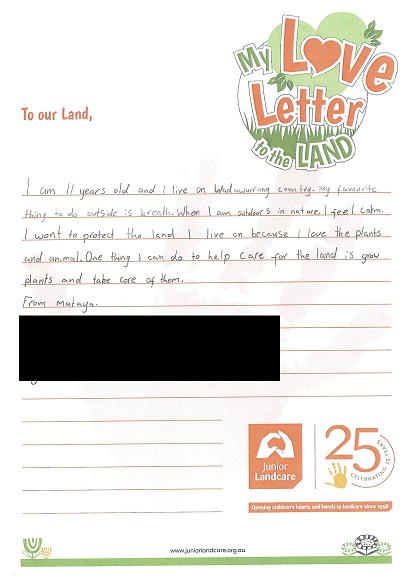 My Love
Letter
to the LAND
To our Land,
I am 11 years old and I live on Wadawurrung country. My favourite
thing to do outside is breath. When I am outdoors in nature, I feel calm.
I want to protect the land I live on because I love the plants
and animal. One thing I can do to help care for the land is grow
plants and take care of them.
From Mataya.
Junior
Landcare
25 YEARS
CELEBRATING
Opening children's hearts and hands to landcare since 1998
www.juniorlandcare.org.au